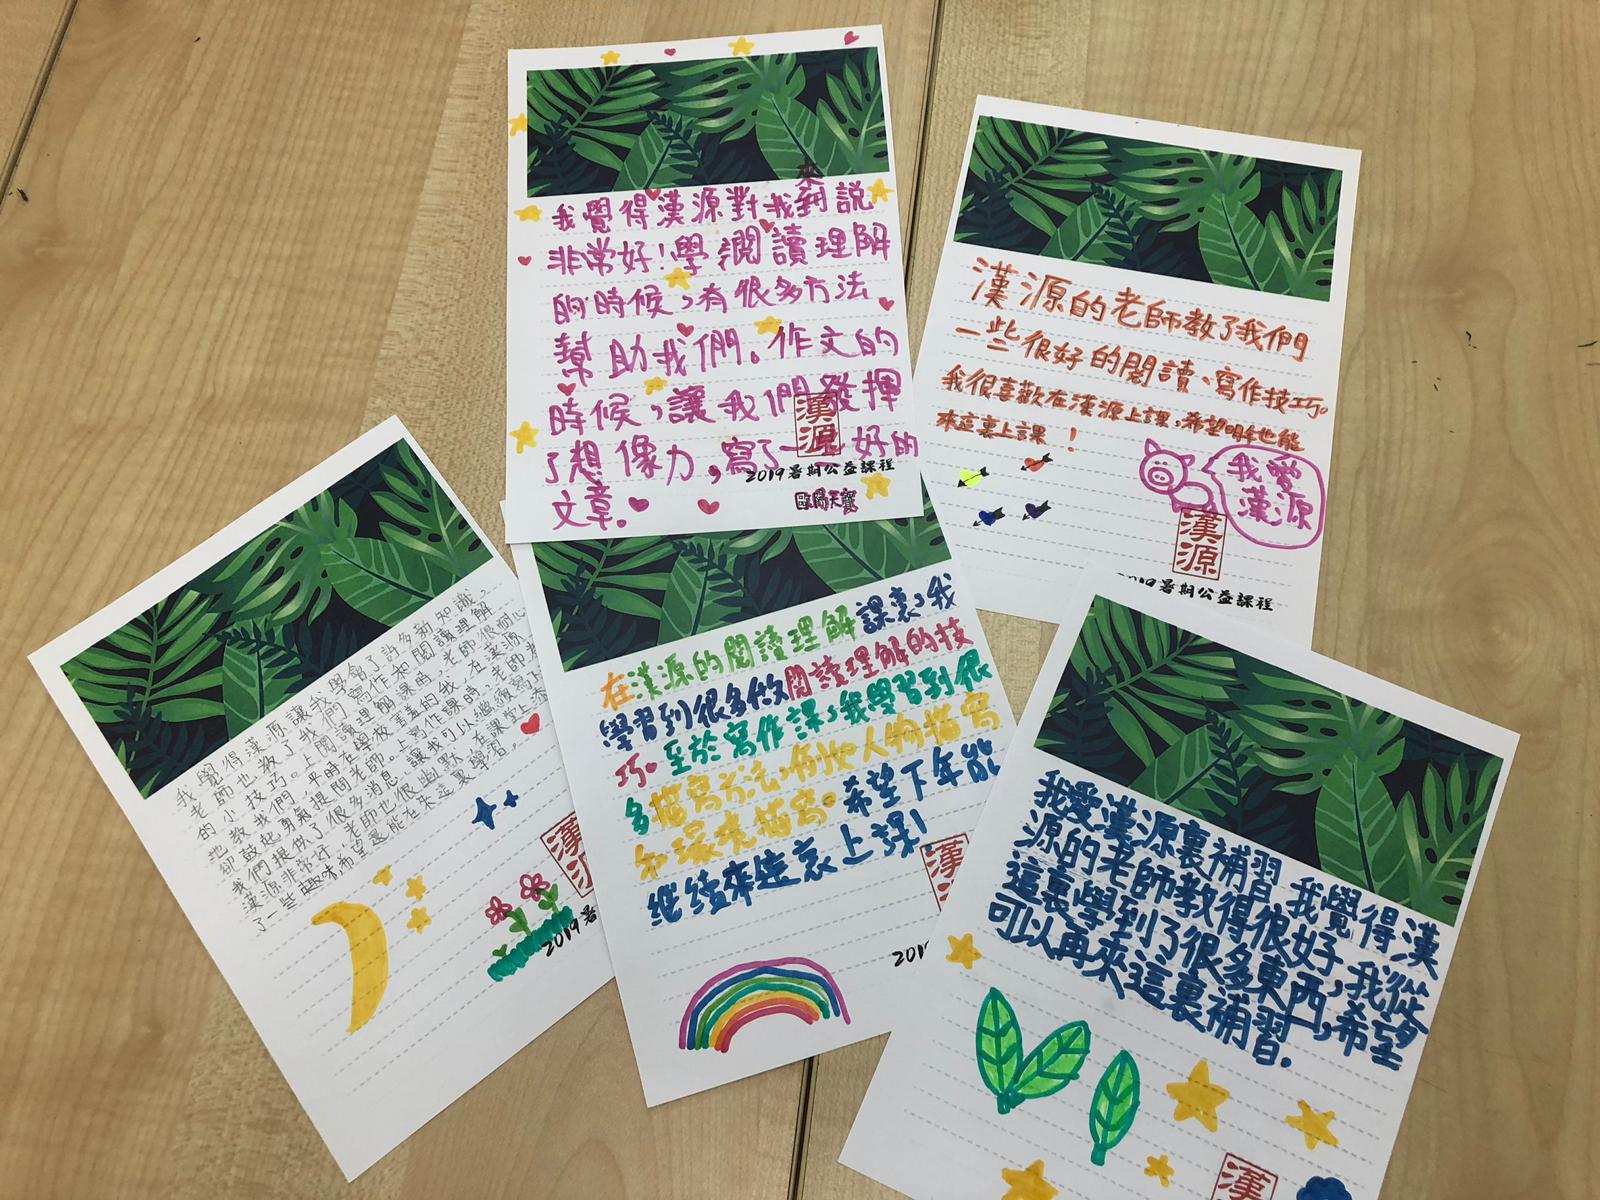 我覺得漢源對我來說
非常好!學閱讀理解
的時候,有很多方法
幫助我們。作文的
時候,讓我們發揮
了想像力,寫了一些好的
文章。
漢源
2019暑期公益課程
歐陽天寶
漢源的老師教了我們
一些很好的閱讀、寫作技巧。
我很喜歡在漢源上課,希望明年也能
來這裏上課!
我愛
漢源
漢源
2019暑期公益課程
我覺得漢源讓我學會了許多新知識,
老師也教了我們寫作和閱讀理解
的小技巧。上閱讀理解課時,老師很耐心
地教我們,平時在學校害羞的我,在漢源
卻鼓起勇氣提問老師。上寫作課時,老師
我們提供了很多消息,讓我可以繼續寫下
漢源非常好,老師也很幽默,在課堂上
了一些趣味,希望還能在來這裏學習。
漢源
2019暑
在漢源的閱讀理解課裏,我
學習到很多做閱讀理解的技
巧。至於寫作課,我學習到很
多描寫方法,例如人物描寫
和環境描寫。希望下年能
繼續來這裏上課!
漢
201
我愛漢源裏補習,我覺得漢
源的老師教得很好,我從
這裏學到了很多東西,希望
可以再來這裏補習。
漢